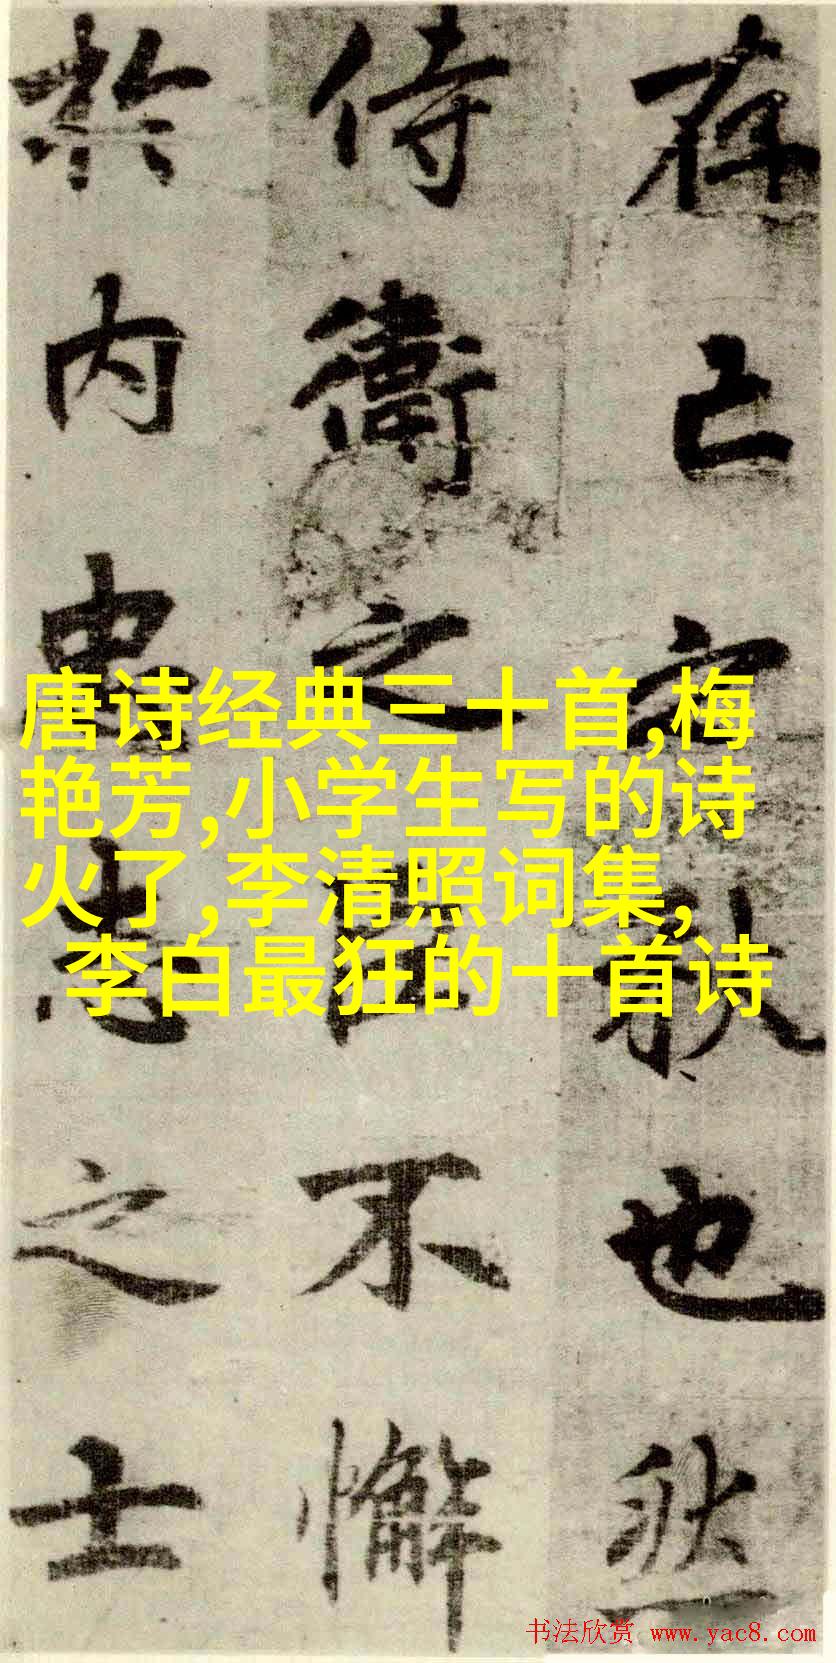 存亡之秋也然
侍衛之臣不懈
於内忠志之士
唐诗经典三十首,梅
艳芳,小学生写的诗
火了,李清照词集,
李白最狂的十首诗
书法欣赏 www.yac8.com